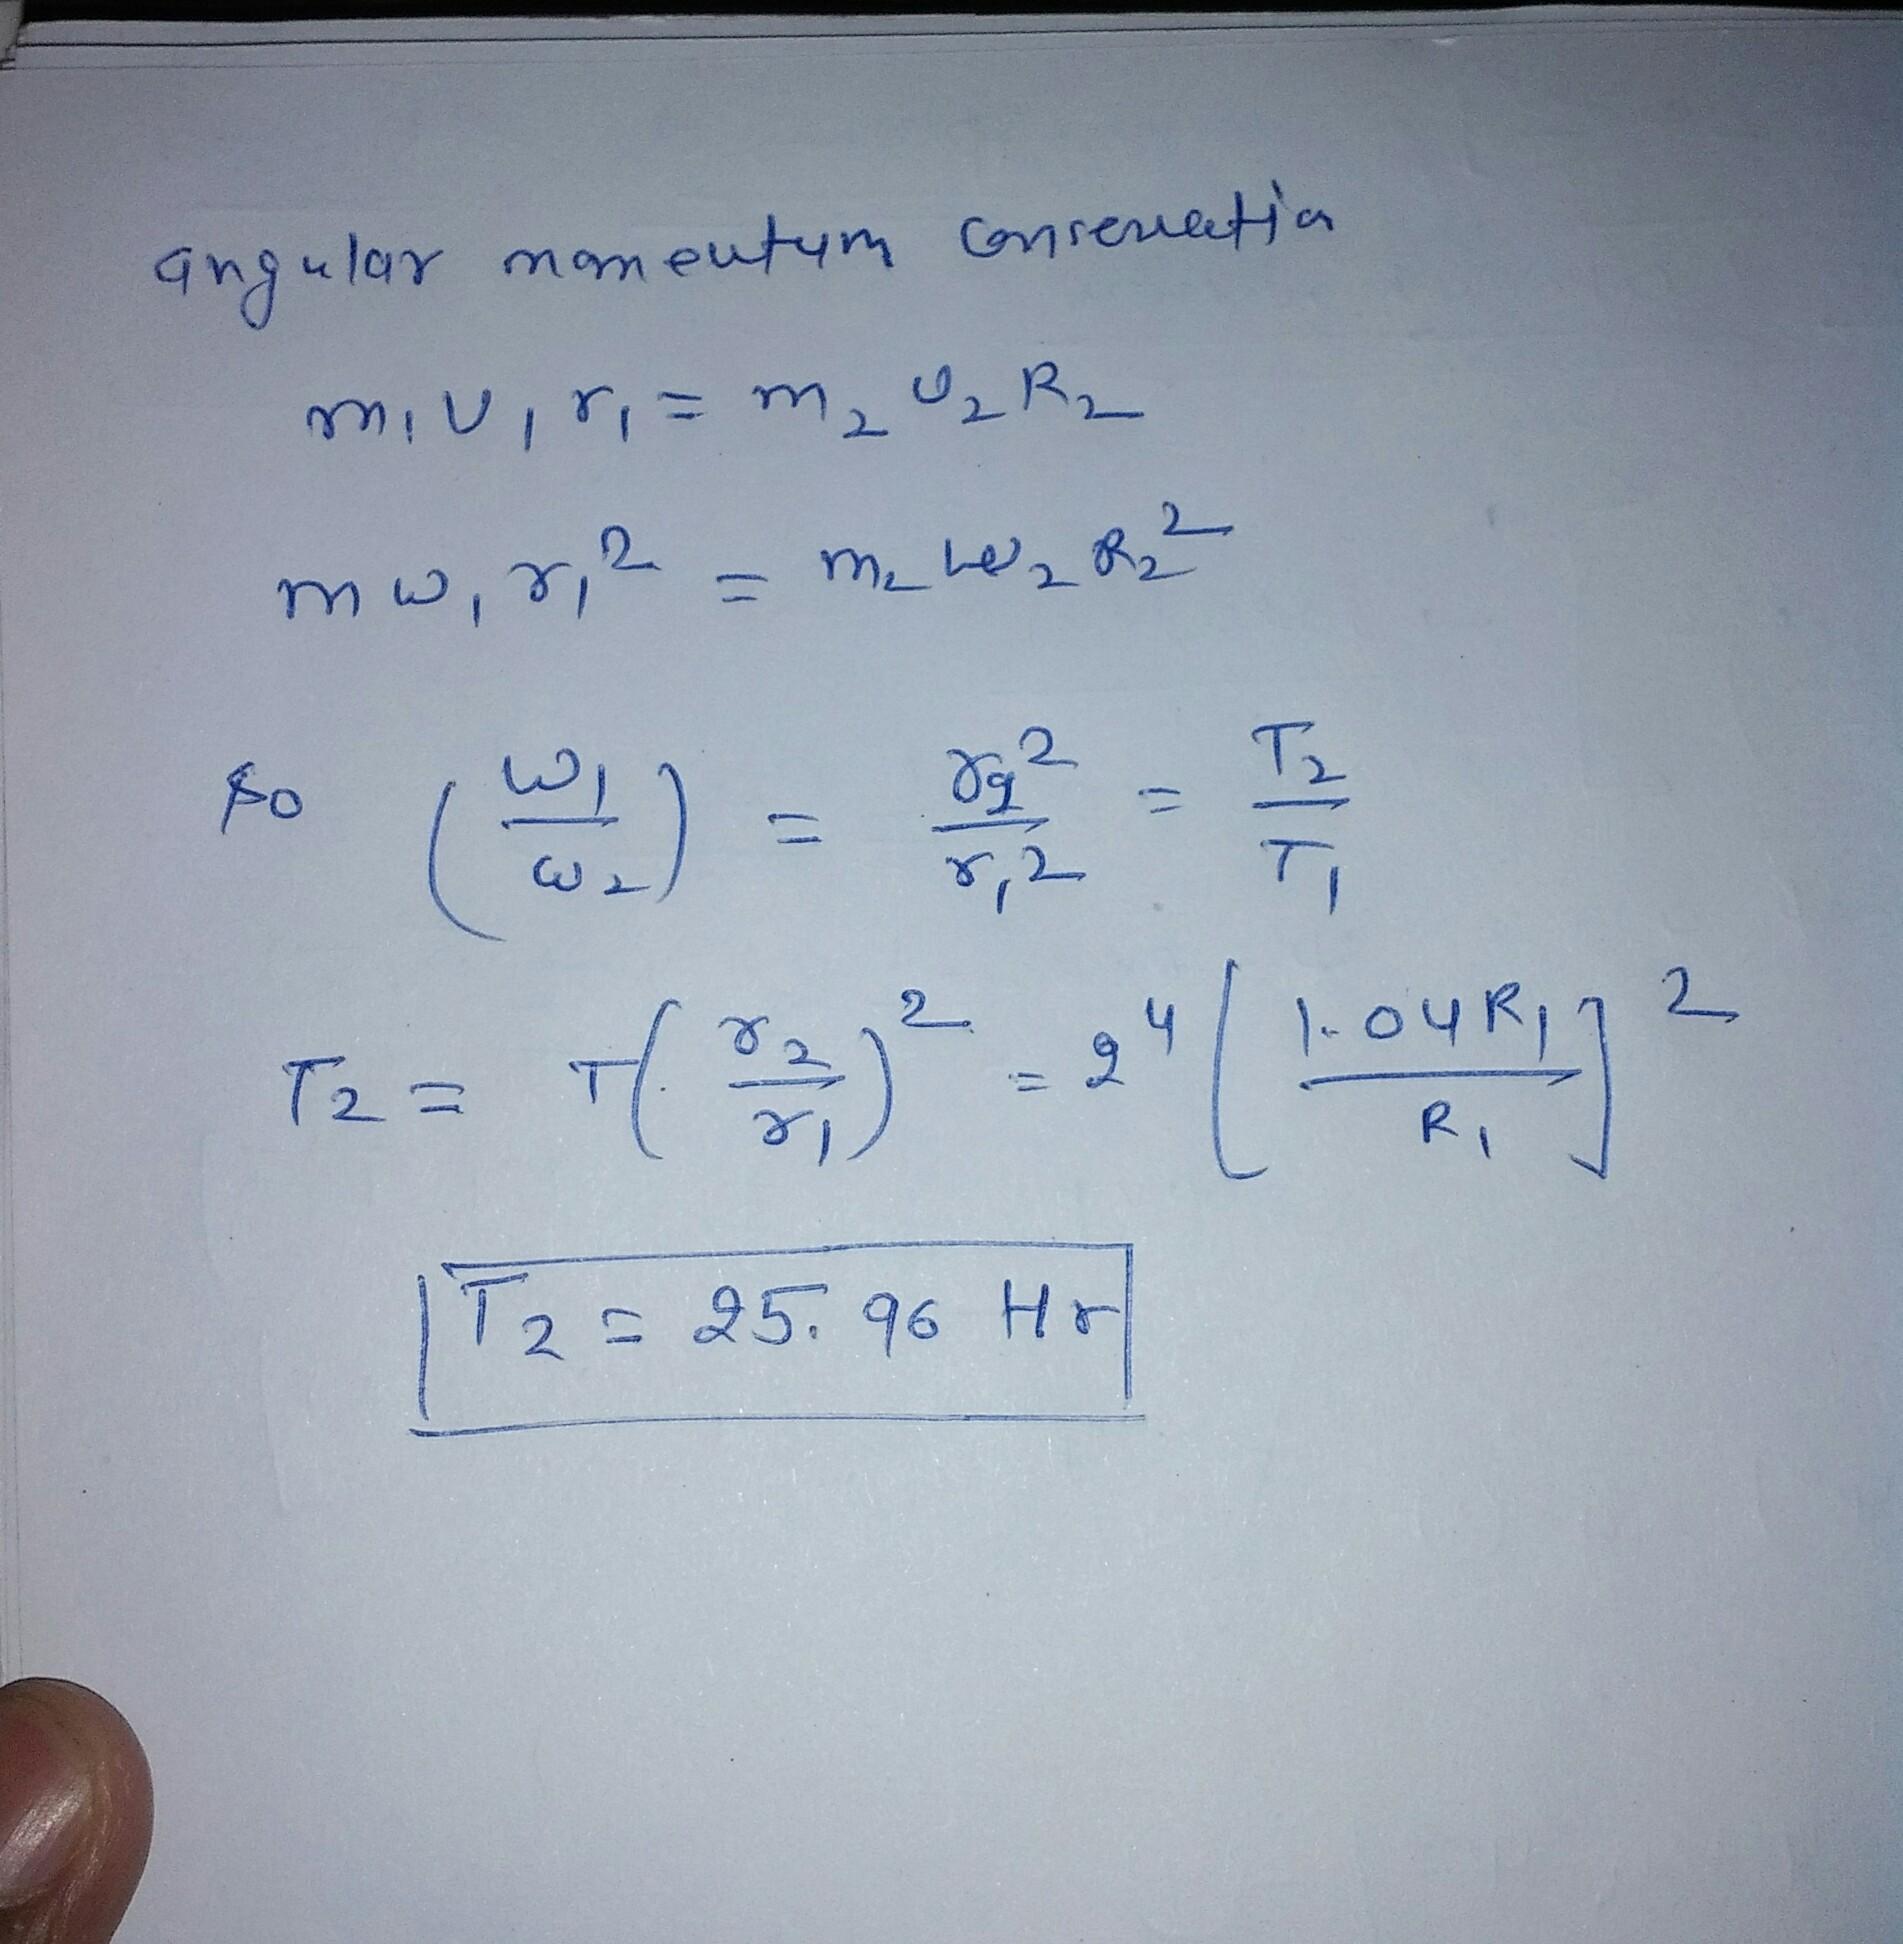 angular momentum conservatia
m₁ υ₁ r₁ = m₂ υ₂ R₂
m ω₁ r₁² = m₂ ω₂ R₂²
so (ω₁/ω₂) = r₂²/r₁² = T₂/T₁
T₂ = T(r₂/r₁)² = 24 [1.04R₁/R₁]²
T₂ = 25.96 Hr